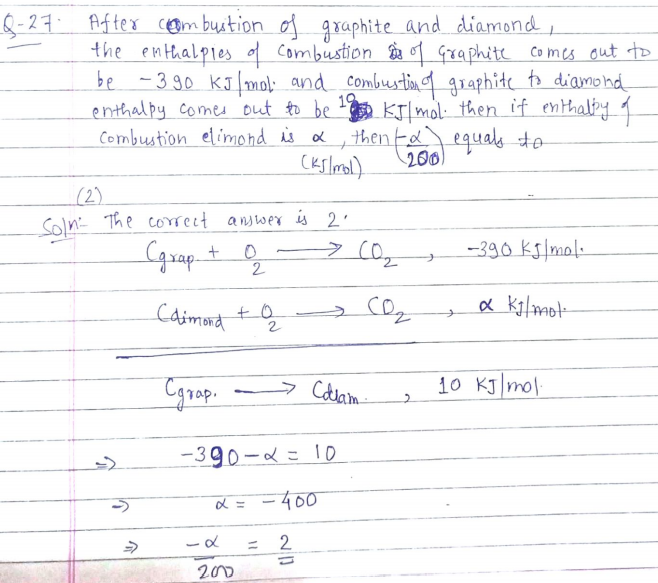 Q-27. After combustion of graphite and diamond,
the enthalpies of combustion of Graphite comes out to
be -390 KJ/mol. and combustion of graphite to diamond
enthalpy comes out to be 10 KJ/mol. then if enthalpy of
combustion dimond is α, then (-α/200) equals to
(KJ/mol)
(2)
Soln:- The correct answer is 2.
Cgrap. + O2 → CO2, -390 KJ/mol.
Cdimond + O2 → CO2, α KJ/mol.
Cgrap. → Cdiam., 10 KJ/mol.
⇒ -390-α = 10
⇒ α = -400
⇒ -α/200 = 2